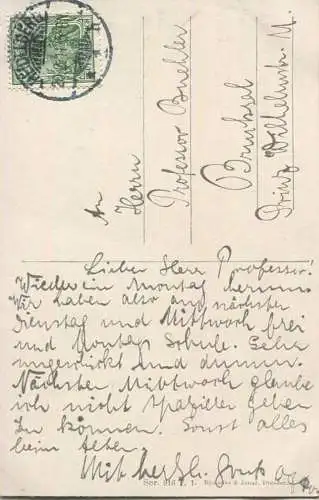 An
Herrn
Professor Buehler
Bruchsal
Prinz Wilhelmstr.
Lieber Herr Professor!
Wieder ein Montag herum.
Wir haben also am nächsten
Dienstag und Mittwoch frei
und Montags Schule. Sehr
ungeschickt und dumm.
Nächsten Mittwoch glaube
ich nicht spazieren gehen
zu können. Sonst alles
beim alten.
Mit herzl. Gruß
Ser. 218